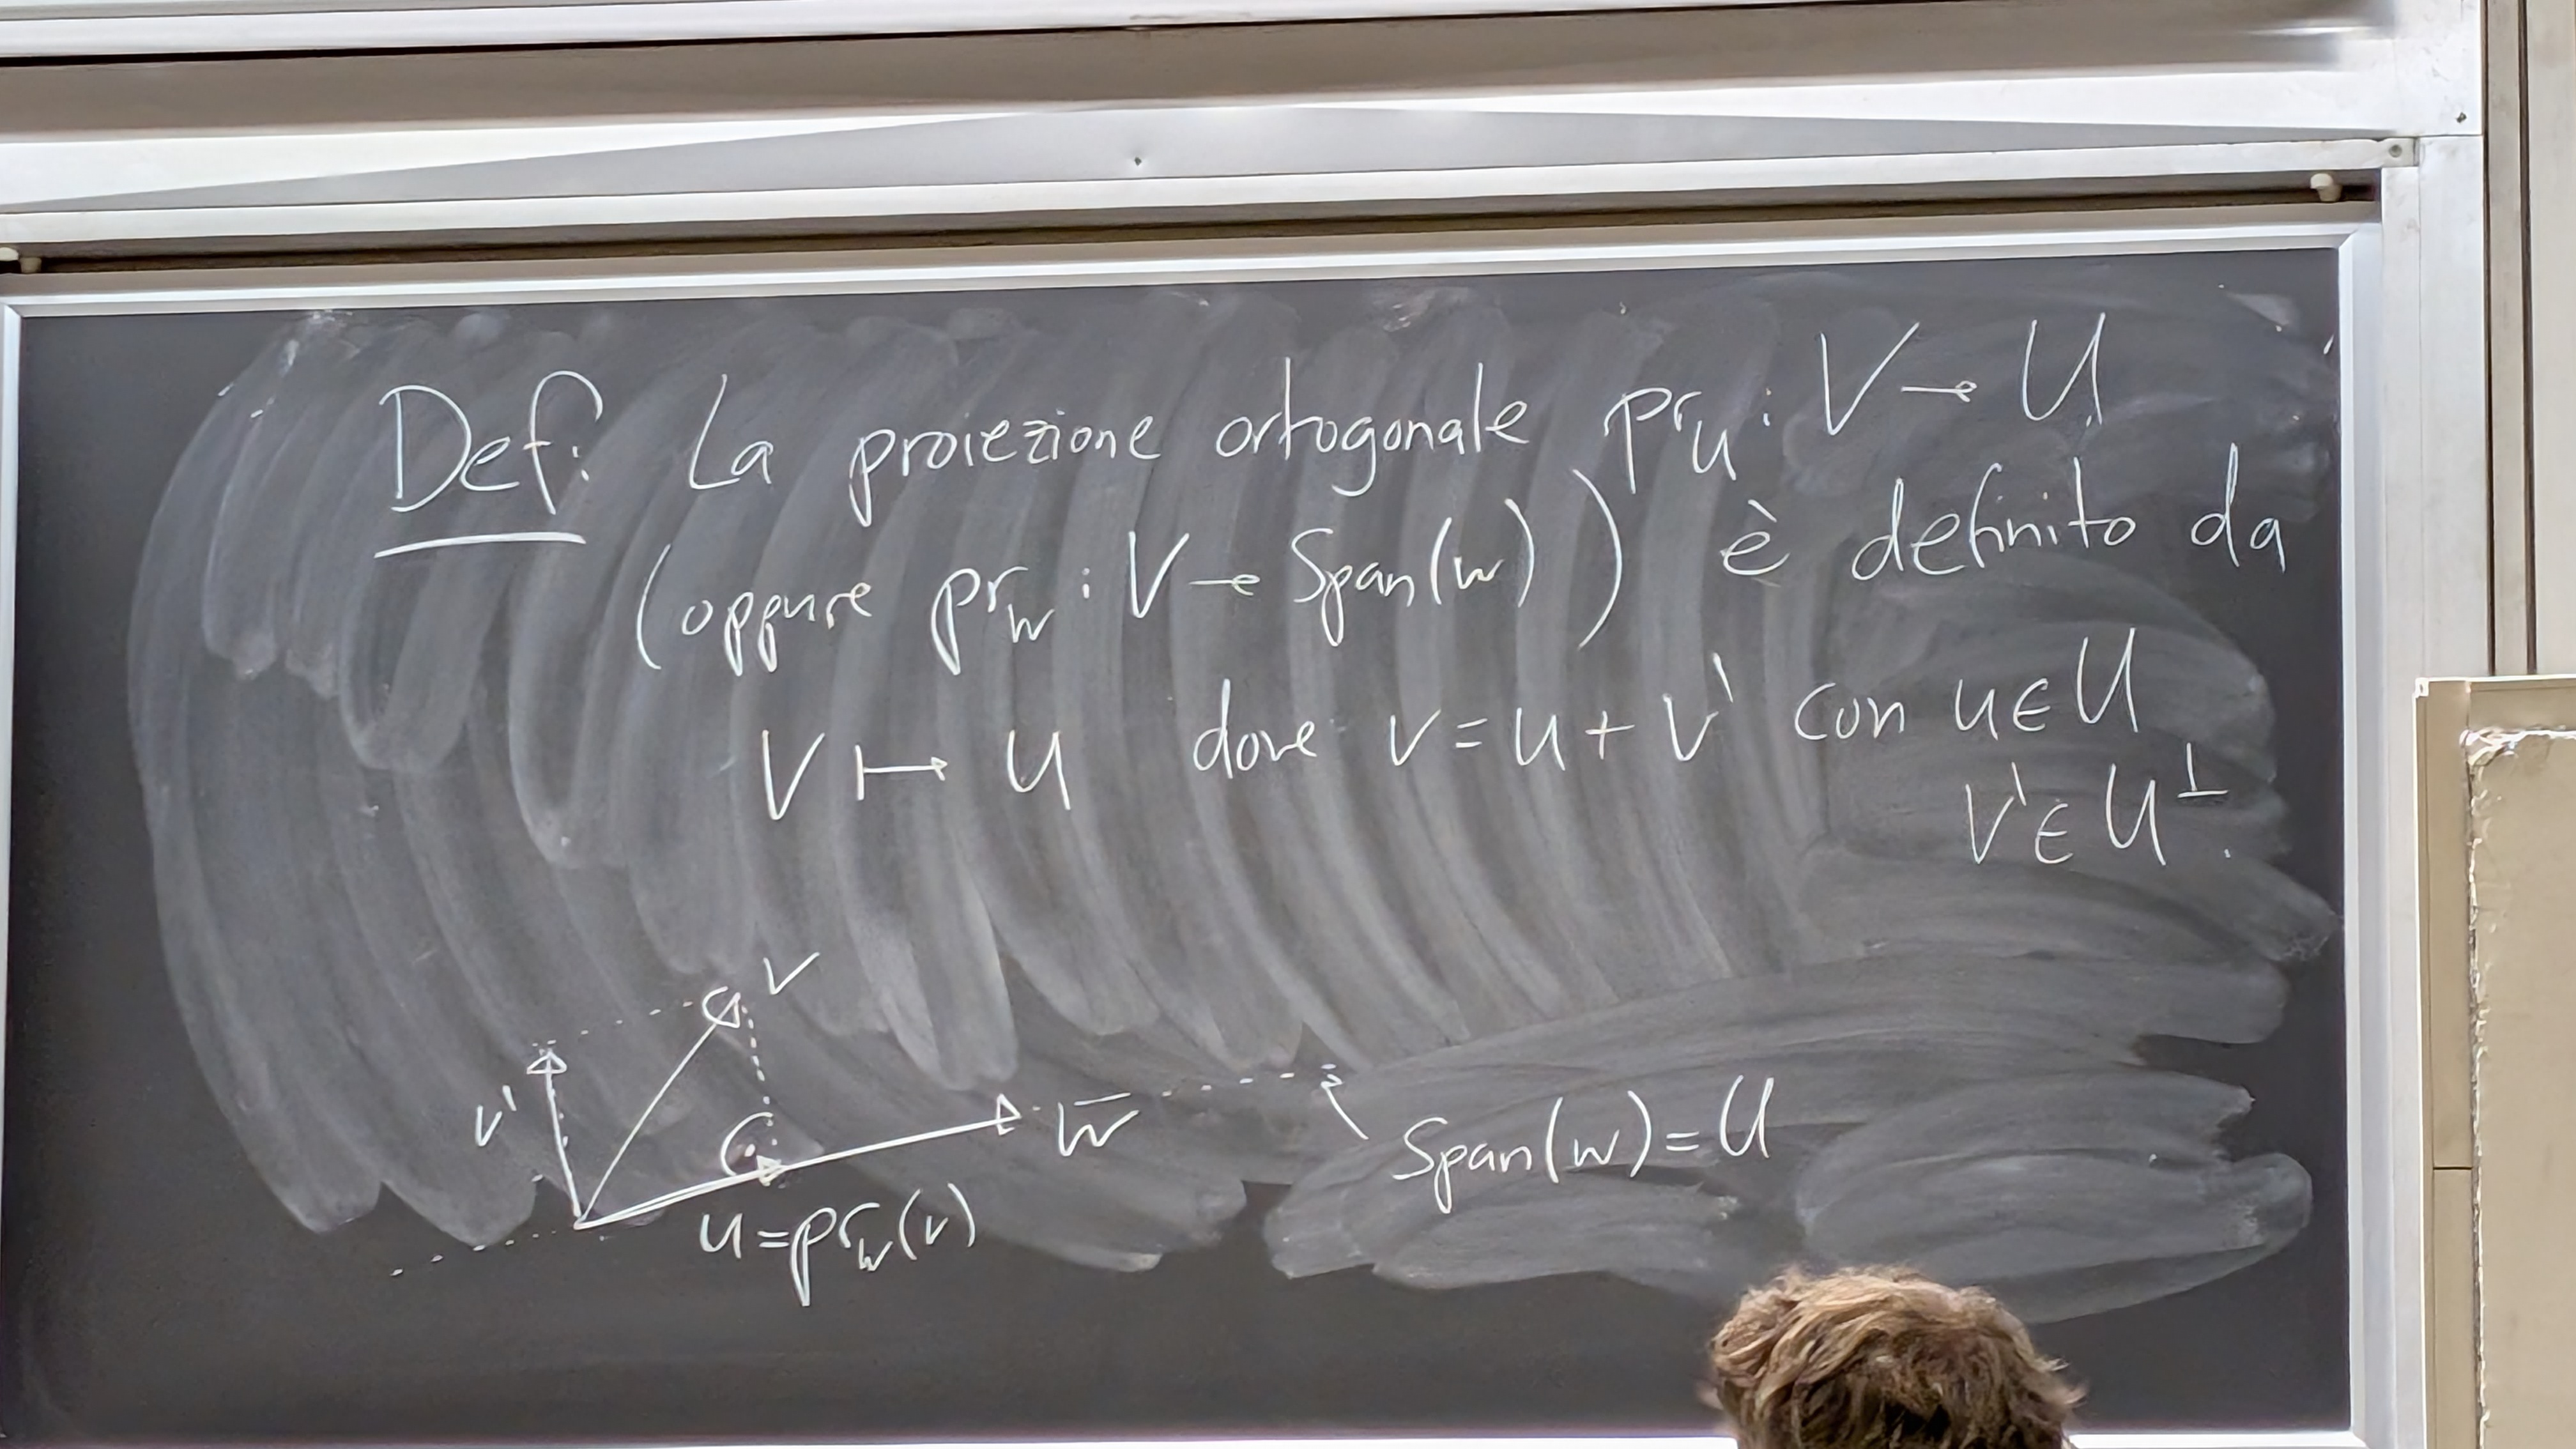 Def: La proiezione ortogonale pr_U : V → U
(oppure pr_w : V → Span(w)) è definito da
v ↦ u dove v = u + v' con u ∈ U
v' ∈ U^⊥.
v
v'
w
Span(w) = U
u = pr_w(v)